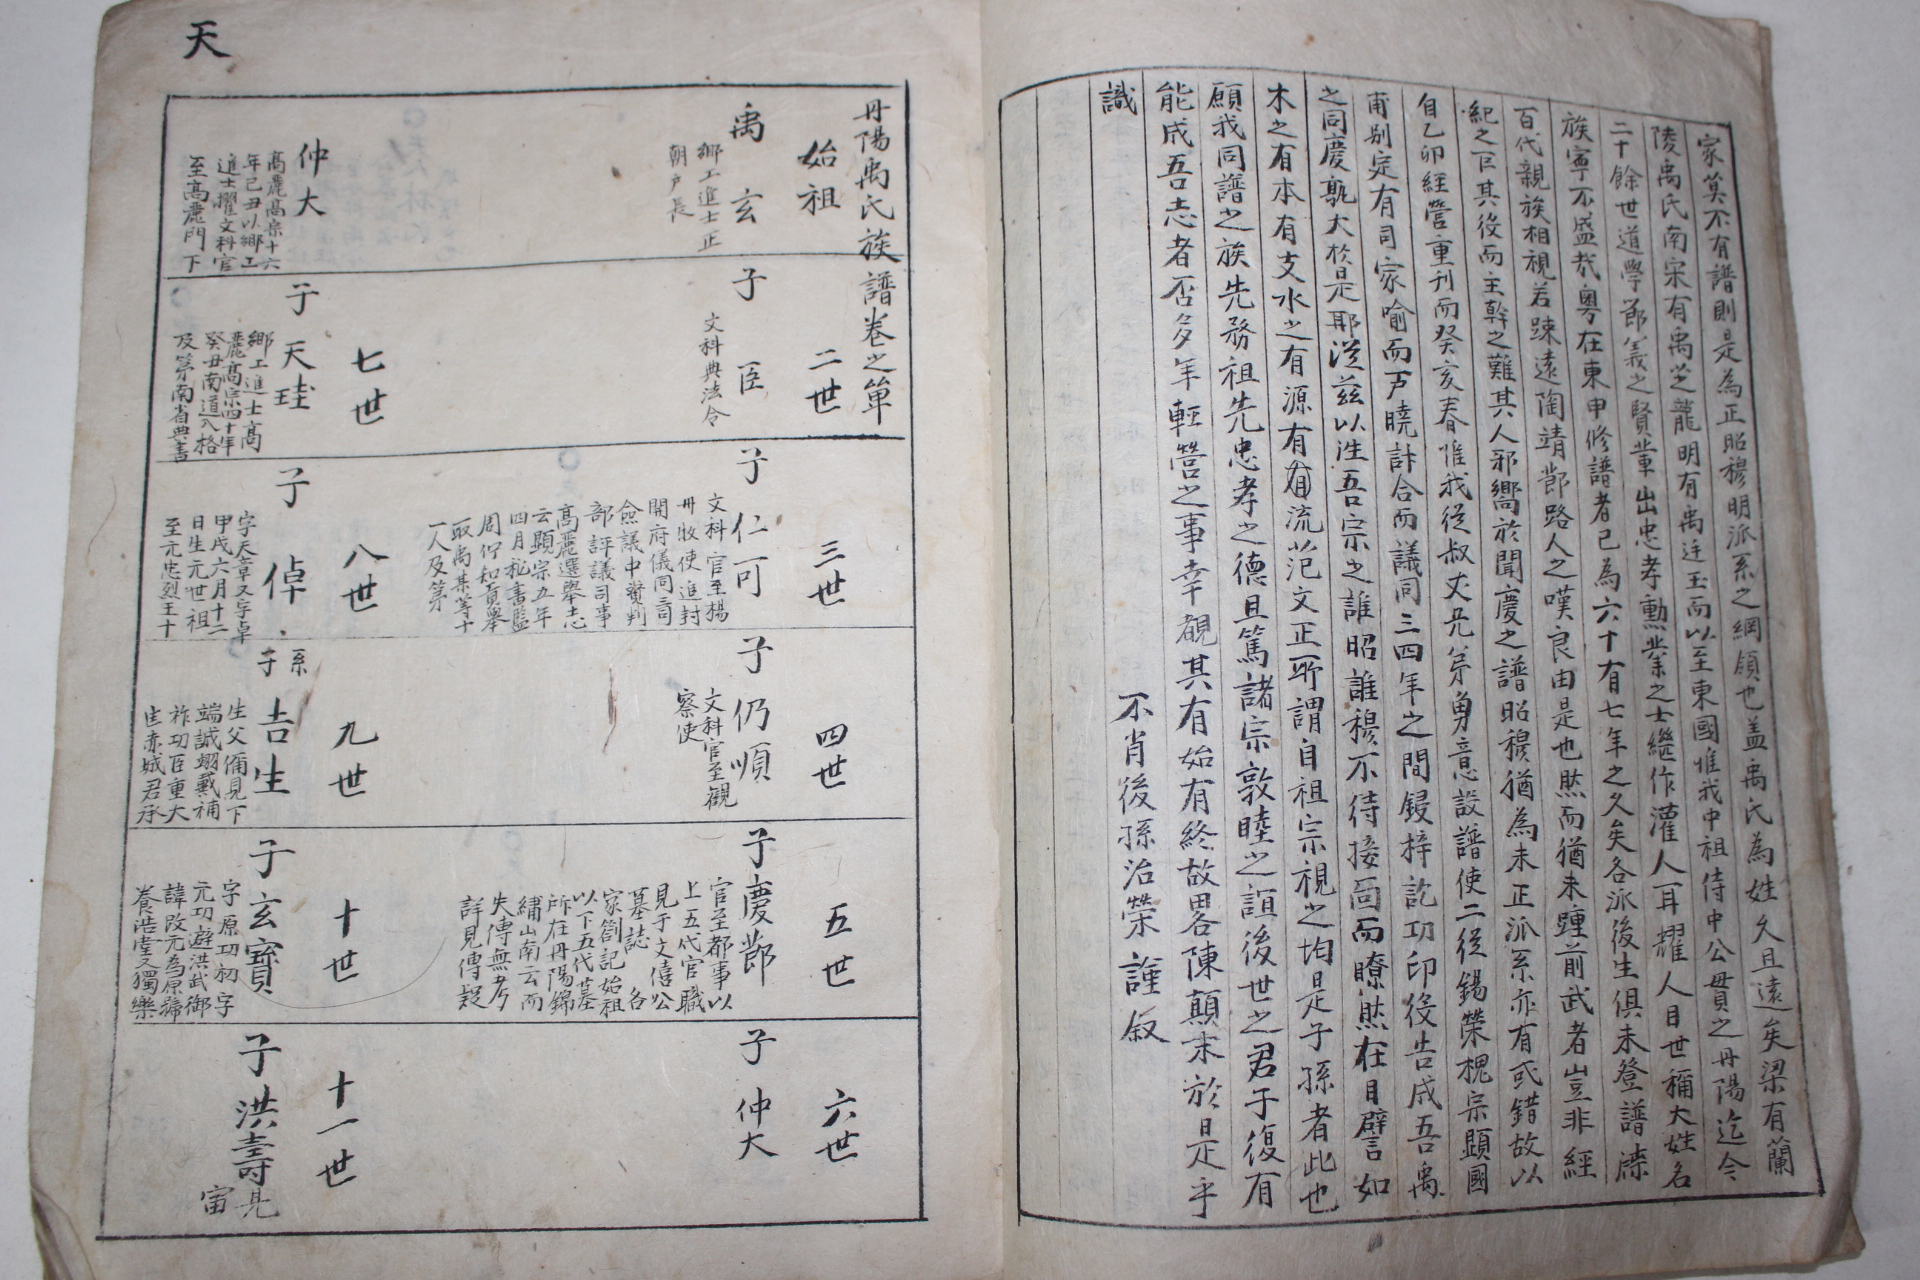 家莫不有譜則是為正昭穆明派系之綱領也盖禹氏為姓久且遠矣梁有蘭
陵禹氏南宋有禹芝龍明有禹迋玉而以至東國惟我中祖侍中公貫之丹陽迄今
二十餘世道學節義之賢輩出忠孝勳業之士継作灌人耳耀人目世稱大姓名
族寧不盛哉粤在東申修譜者已為六十有七年之久矣各派後生俱未登譜牒
百代親族相視若踈遠陶靖節路人之嘆良由是也然而猶未踵前武者豈非經
紀之臣其後而主幹之難其人邪嚮於聞慶之譜昭穆猶為未正派系亦有或錯故以
自乙卯經營重刊而癸亥春惟我從叔丈允第勇意設譜使二從錫榮槐宗顯國
甫別定有司家喻而戶曉計合而議同三四年之間鋟梓訖功印役告成吾禹
之同慶孰大於是耶從茲以徃吾宗之誰昭誰穆不待接面而瞭然在目譬如
木之有本有支水之有源有流范文正所謂自祖宗視之均是子孫者此也
願我同譜之族先務祖先忠孝之德且篤諸宗敦睦之誼後世之君子復有
能成吾志者否多年輕營之事幸覩其有始有終故畧陳顛末於是乎
識
不肖後孫治榮謹叙
天
丹陽禹氏族譜卷之單
始祖
禹玄
鄉工進士正
朝戶長
二世
子臣
文科典法令
三世
子仁可
文科官至楊
州牧使進封
開府儀同三司
僉議中贊判
部評議司事
高麗選舉志
云顯宗五年
四月秘書監
周佇知貢舉
取禹某等十
一人及第
四世
子仍順
文科官至觀
察使
五世
子慶節
官至都事以
上五代官職
見于文僖公
墓誌 各
家劄記始祖
以下五代墓
所在丹陽錦
繡山南云而
失傳無考
詳見傳疑
六世
子仲大
仲大
高麗高宗十六
年己丑以鄉工
進士擢文科官
至高麗門下
七世
子天珪
鄉工進士高
麗高宗四十年
癸丑南道入格
及第南省典書
八世
子倬
字天章又字卓
甲戌六月十二
日生元世祖
至元忠烈王十
九世
系子吉生
生父偁見下
端誠翊戴補
祚功臣重大
匡赤城君承
十世
子玄寶
字原功初字
元功避洪武御
諱改元為原號
養浩堂又獨樂
十一世
子洪壽見
宙